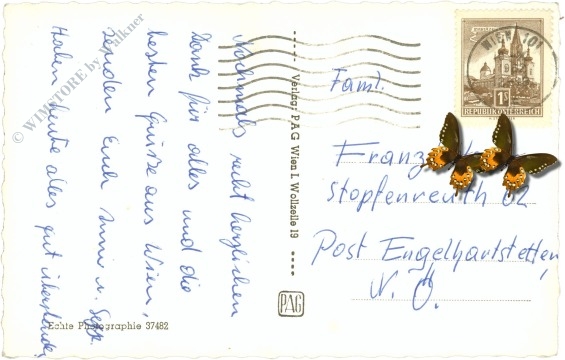 Nochmals recht herzlichen
Dank für alles und die
besten Grüsse aus Wien,
senden Euch Mimi u. Sepp.
Haben heute alles gut überstanden
Echte Photographie 37482
---- Verlag: PAG Wien I. Wollzeile 19 ----
PAG
WIEN 101
1S
REPUBLIK ÖSTERREICH
Faml.
Franz
Stopfenreuth 62
Post Engelhartstetten,
N. Ö.
© WIMSTORE by Falkner